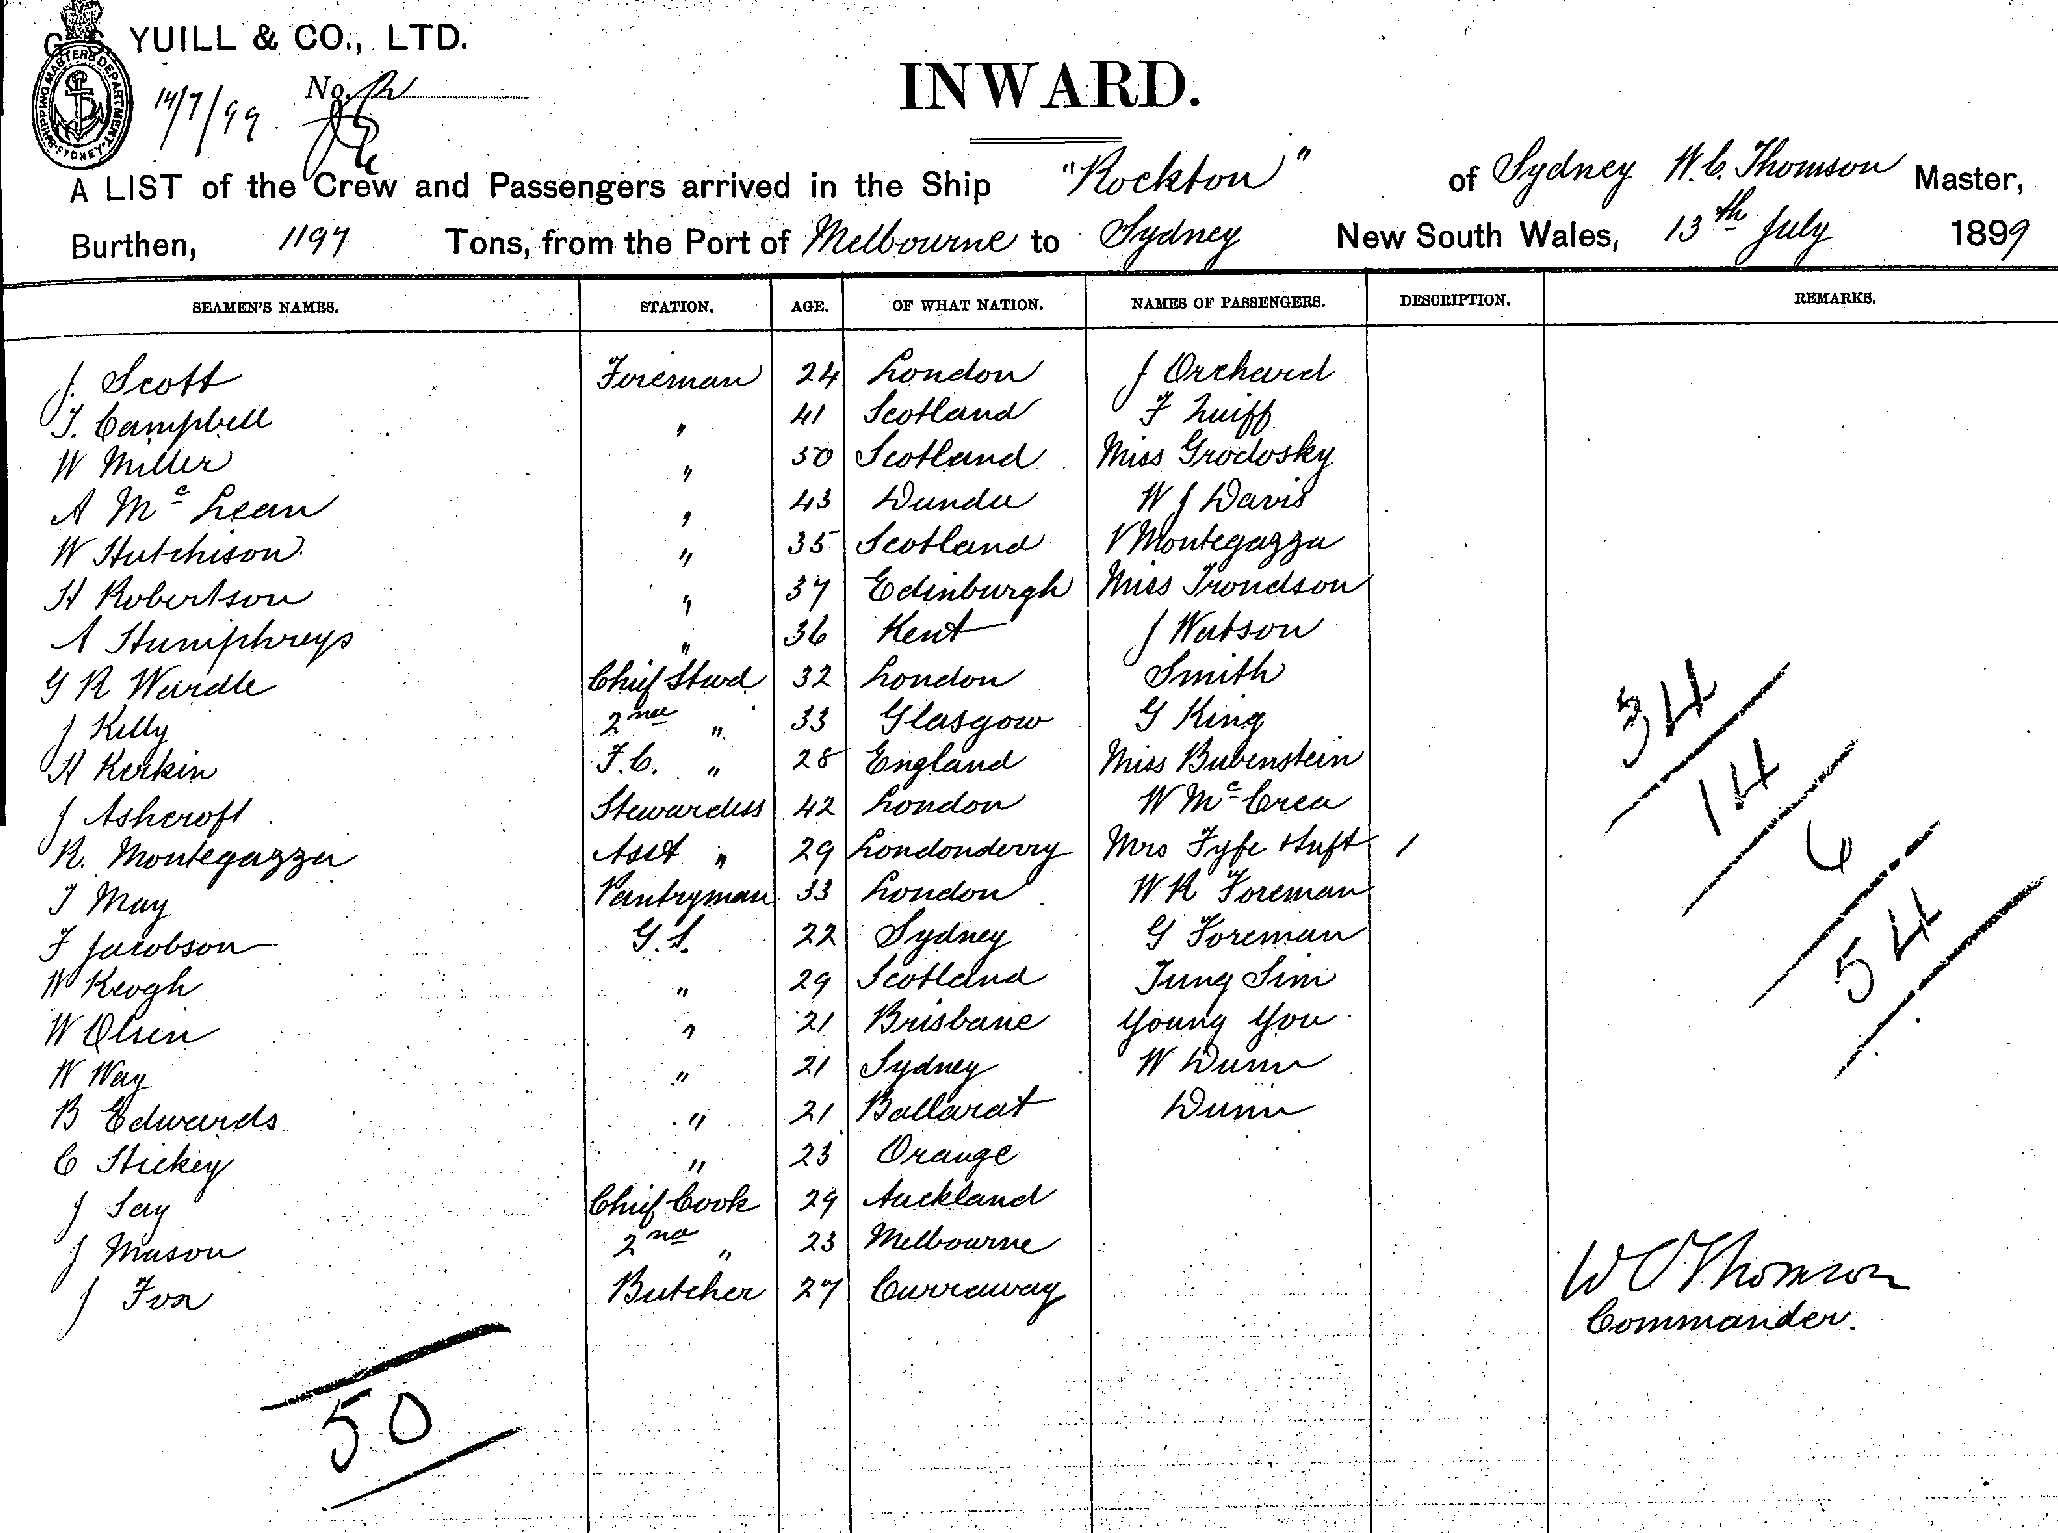 YUILL & CO., LTD.
SHIPPING MASTERS DEPARTMENT SYDNEY
14/7/99 No.
INWARD.
A LIST of the Crew and Passengers arrived in the Ship "Rockton" of Sydney W. C. Thomson Master,
Burthen, 1197 Tons, from the Port of Melbourne to Sydney New South Wales, 13th July 1899
SEAMEN'S NAMES. STATION. AGE. OF WHAT NATION. NAMES OF PASSENGERS. DESCRIPTION. REMARKS.
J. Scott Foreman 24 London J Orchard
T. Campbell " 41 Scotland F
W Miller " 50 Scotland Miss Grodosky
A Mc Lean " 43 Dundee W J Davis
W Hutchison " 35 Scotland V Montegazza
H Robertson " 37 Edinburgh Miss Trondson
A Humphreys " 36 Kent J Watson
G R Wardle Chief Stwd 32 London Smith
J Kelly 2nd " 33 Glasgow G King
H Kerkin F.C. " 28 England Miss Bubenstein
J Ashcroft Stewardess 42 London W Mc Crea
R. Montegazza Asst " 29 Londonderry Mrs Fyfe & Inft 1
T May Pantryman 33 London W R Foreman
F Jacobson G.S. 22 Sydney G Foreman
W Keogh " 29 Scotland Tung Sim
W Olsen " 21 Brisbane Young You
W Way " 21 Sydney W Dunn
B Edwards " 21 Ballarat Dunn
C Hickey " 23 Orange
J Say Chief Cook 29 Auckland
J Mason 2nd " 23 Melbourne
J Butcher 27 Curraway
34
14
6
54
W C Thomson
Commander.
50